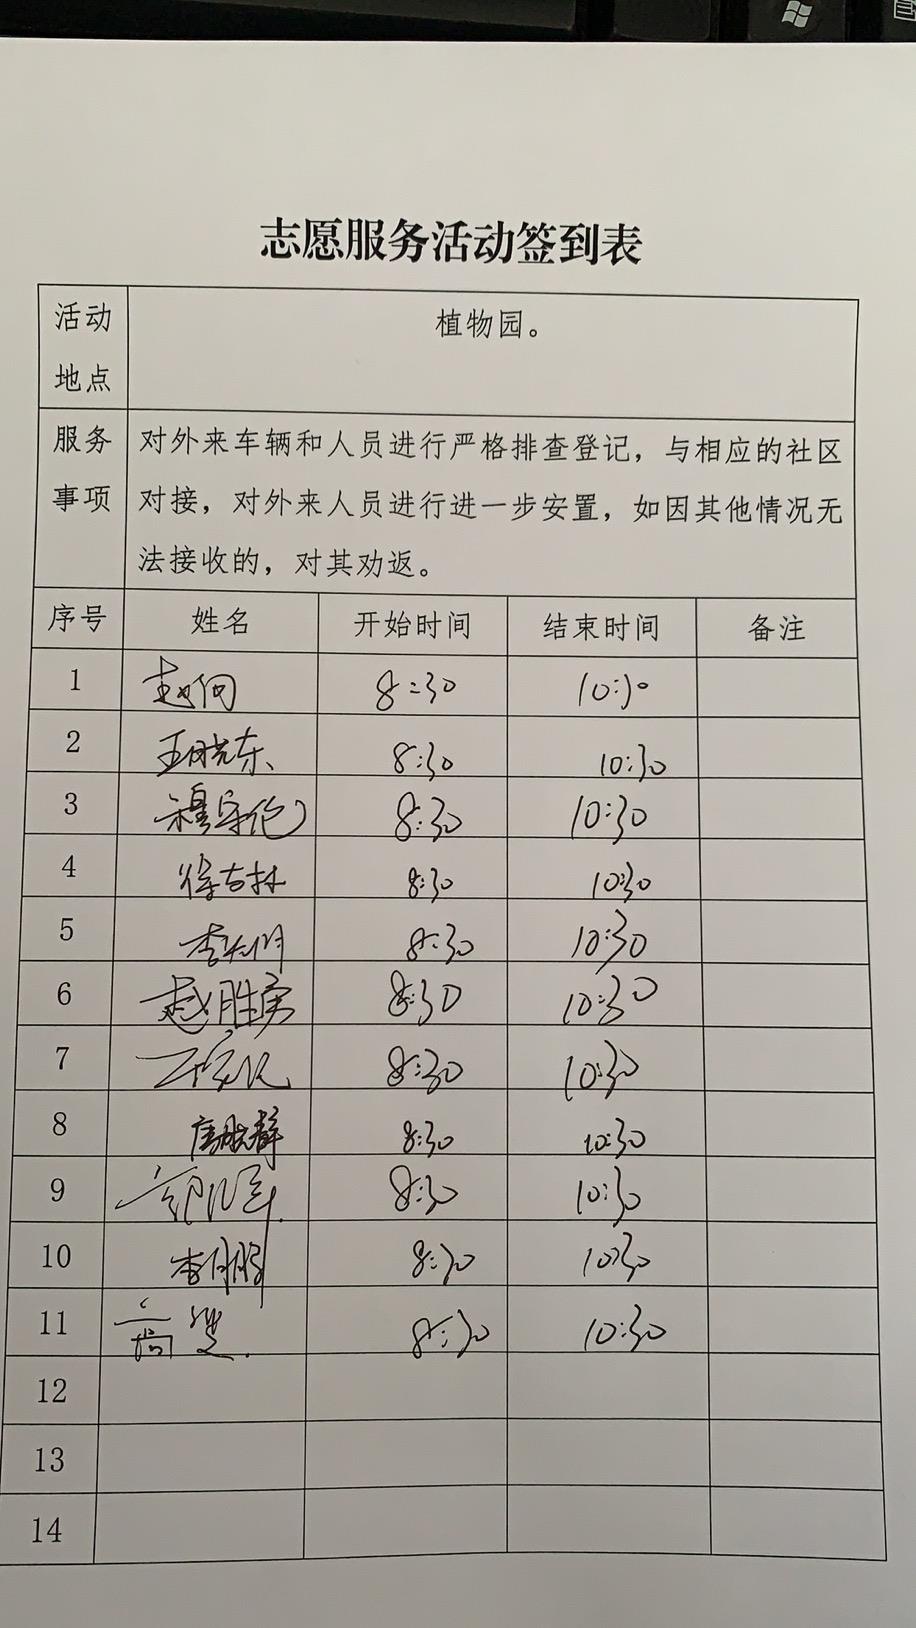 志愿服务活动签到表
活动地点 植物园。
服务事项 对外来车辆和人员进行严格排查登记，与相应的社区
对接，对外来人员进行进一步安置，如因其他情况无
法接收的，对其劝返。
序号 姓名 开始时间 结束时间 备注
1 8:30 10:30
2 王晓东 8:30 10:30
3 穆宗伦 8:30 10:30
4 徐吉林 8:30 10:30
5 8:30 10:30
6 赵胜寅 8:30 10:30
7 8:30 10:30
8 唐晓静 8:30 10:30
9 8:30 10:30
10 李月鹏 8:30 10:30
11 高楚 8:30 10:30
12
13
14